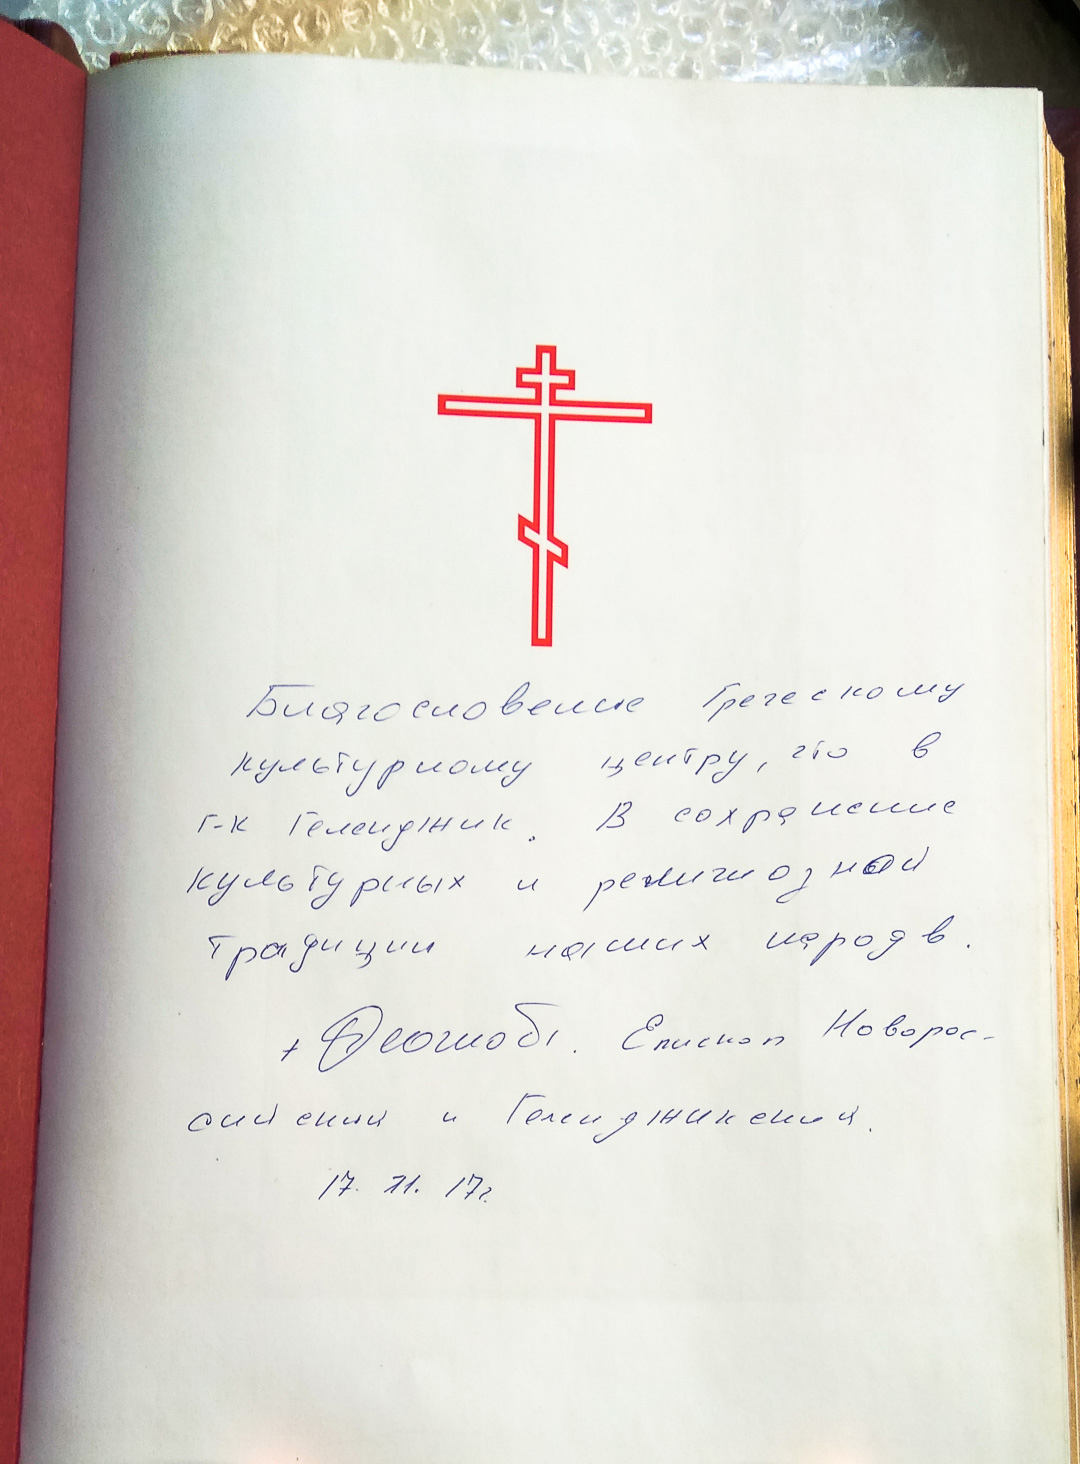 Благословение Греческому
культурному центру, что в
г-к Геленджик. В сохранение
культурных и религиозной
традиции наших народв.
+ Феогност. Епископ Новорос-
сийский и Геленджикский.
17. 11. 17г.